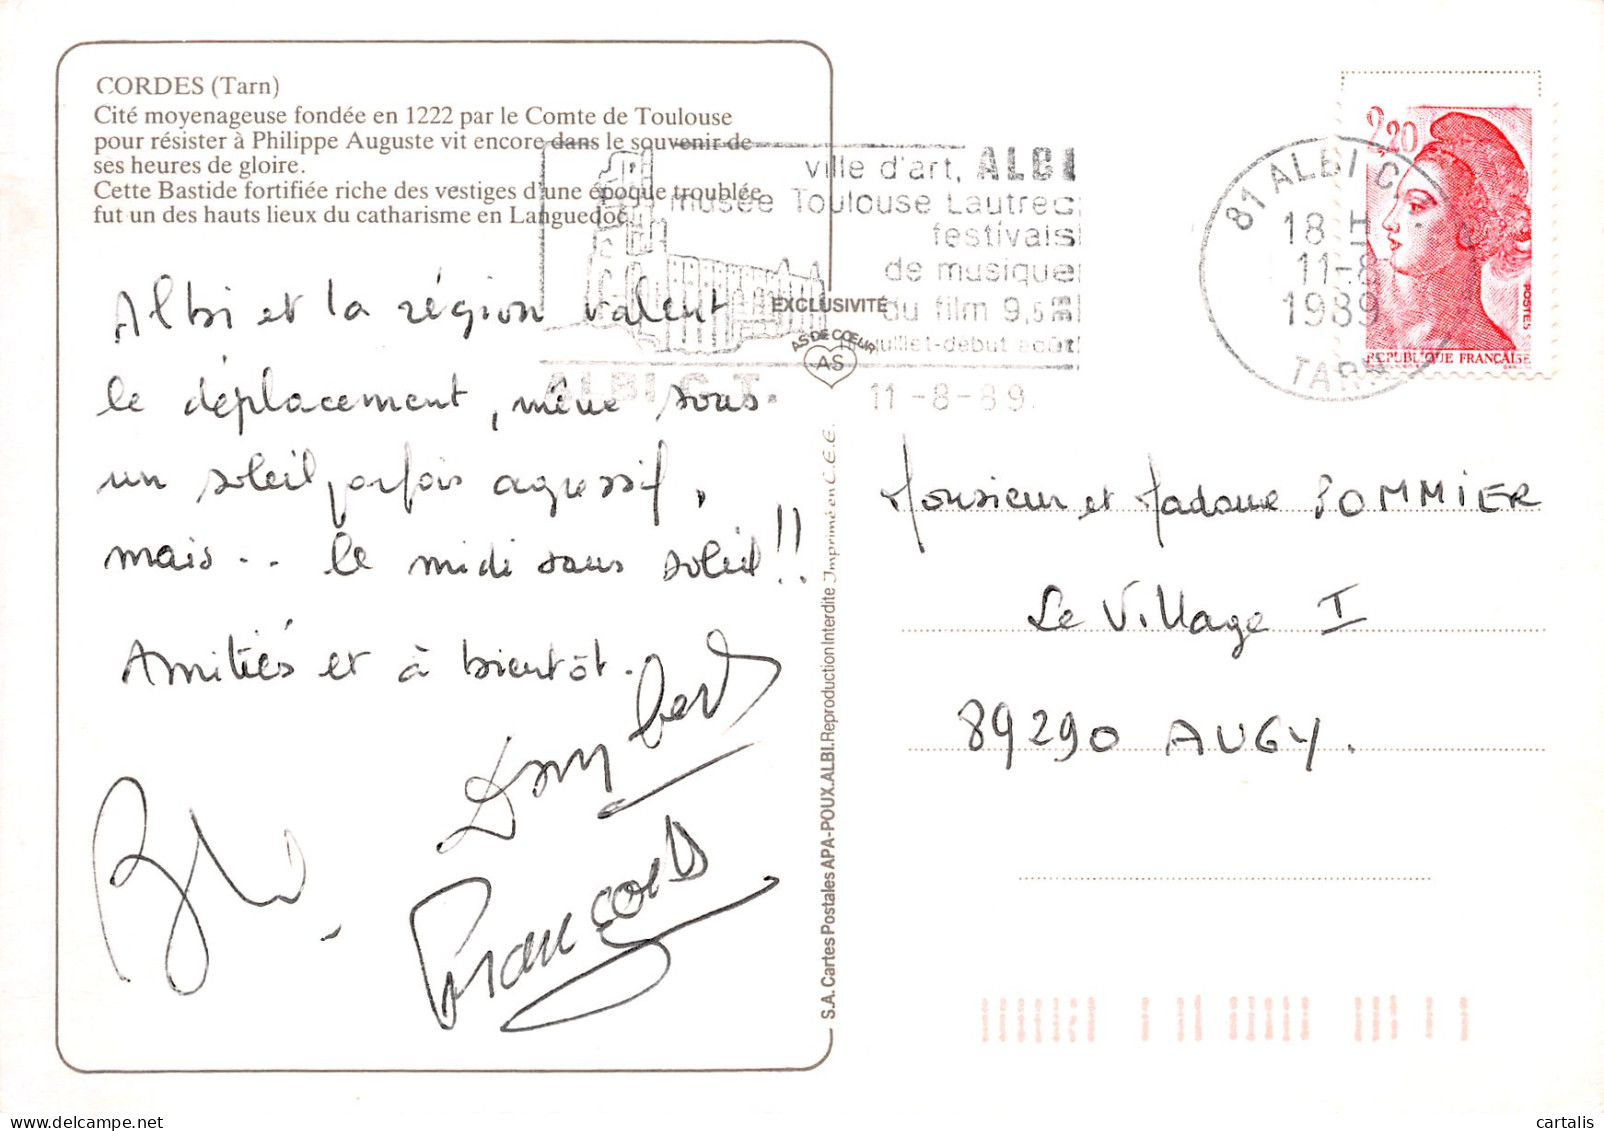 CORDES (Tarn)
Cité moyenageuse fondée en 1222 par le Comte de Toulouse
pour résister à Philippe Auguste vit encore dans le souvenir de
ses heures de gloire.
Cette Bastide fortifiée riche des vestiges d'une époque troublée
fut un des hauts lieux du catharisme en Languedoc.
Albi et la région valent
le déplacement, même sous
un soleil parfois agressif,
mais.. le midi sans soleil!!
Amitiés et à bientôt.
François
ville d'art, ALBI
musée Toulouse Lautrec
festivals
de musique
du film 9,5 m
juillet-début août
ALBI C.T.
11-8-89.
EXCLUSIVITÉ
AS DE CŒUR
AS
S.A. Cartes Postales APA-POUX. ALBI. Reproduction Interdite Imprimé en C.E.E.
81 ALBI C.T.
18 H
11-8
1989
TARN
2,20
POSTES
REPUBLIQUE FRANÇAISE
Monsieur et Madame POMMIER
Le Village I
89290 AUGY.
cartalis